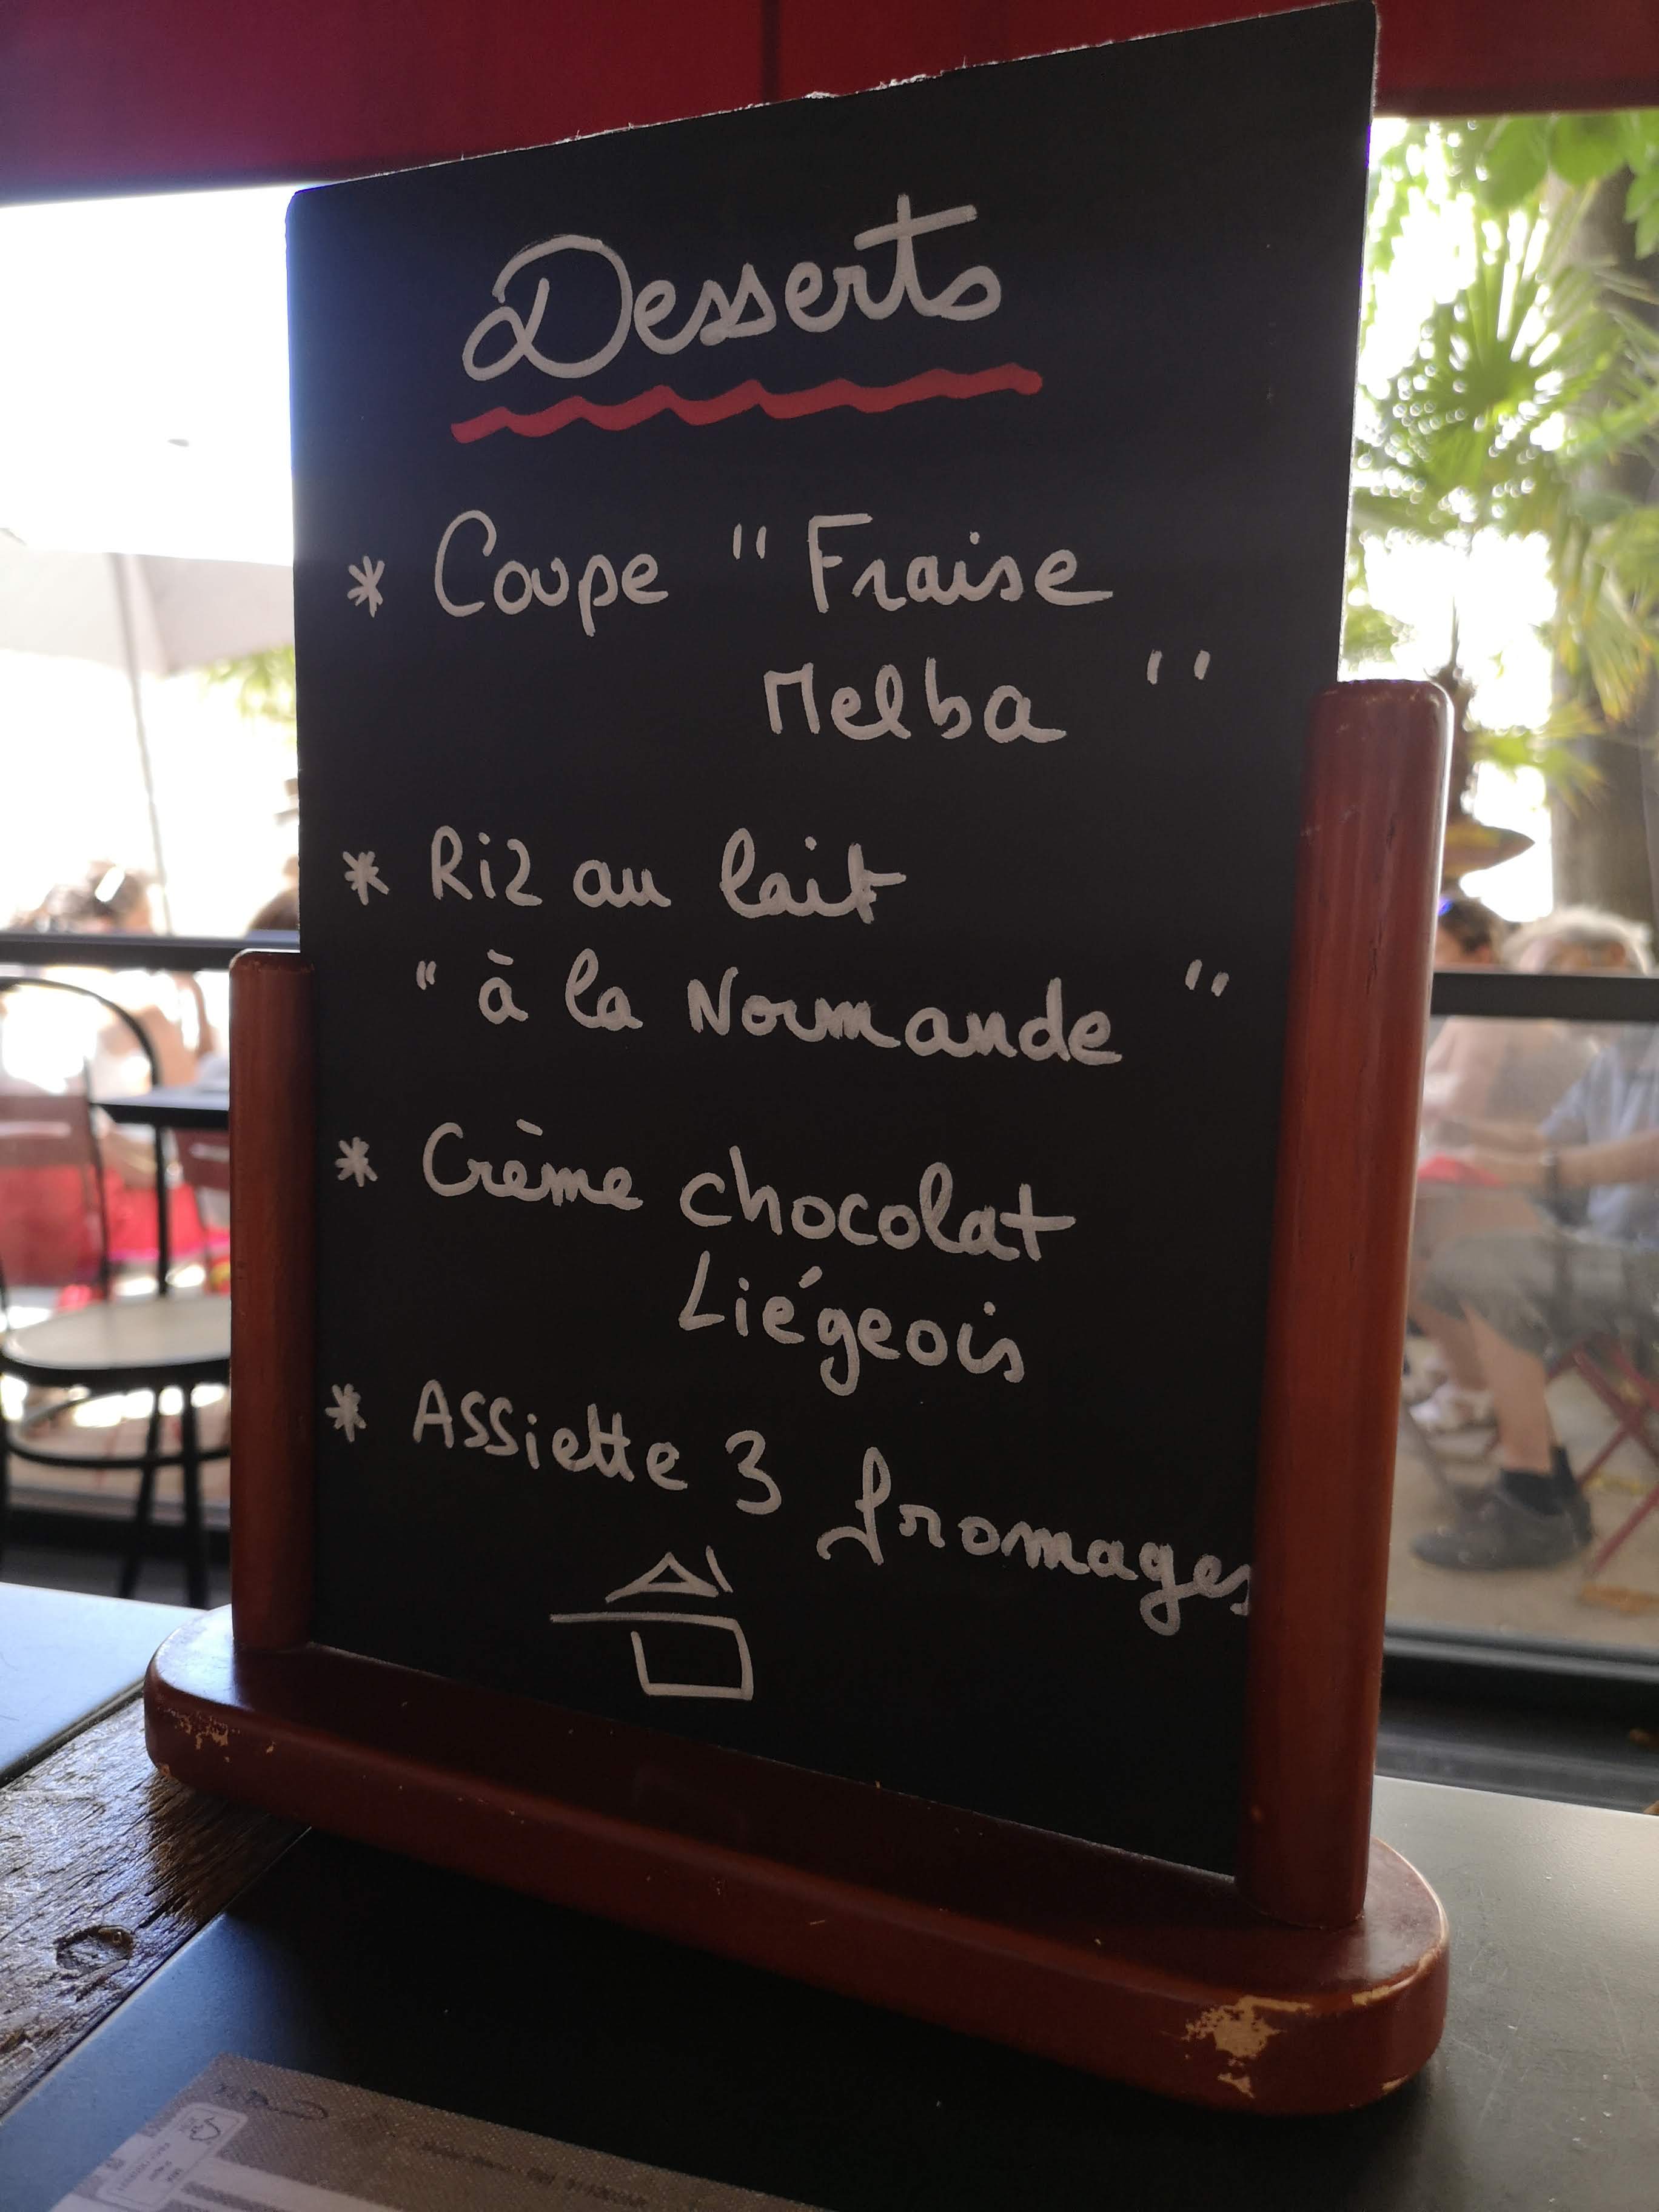 Desserts
* Coupe "Fraise
Melba"
* Riz au lait
"à la Normande"
* Crème chocolat
Liégeois
* Assiette 3 fromages